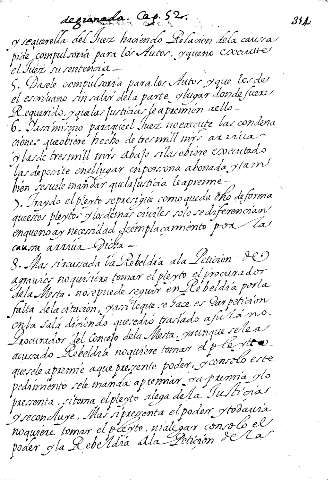 de granada. Cap. 52.
y se querella del Juez haciendo Relacion de la causa
pide compulsoria para los Autos, y que no execute
el Juez su sentencia
5. Dase compulsoria para los Autos y que les de
el escribano sin salir de la parte, y lugar donde fuere
Requerido, y que la Justicia le apremien a ello
6. Para que el Juez no execute las condena
ciones que obiere hecho de tres mill mrs arriva
y las de tres mill mrs abajo si las obiere executado
las deposite en el lugar en persona abonada, y tam
bien se suele mandar que la Justicia le apremie
7. Traydo el pleyto se prosigue como queda dho de forma
que estos pleytos y los demas civiles solo se diferencian
en que no ay necesidad de emplacamiento por la
causa arriva dicha
8. Mas si acusada la Rebeldia a la Peticion de
agravios no quisiere tomar el pleyto el procurador
de la Mesta, no se puede seguir en Rebeldia por la
falta de la citacion, y asi lo que se hace es dar peticion
en la sala diciendo que se dio traslado
Procurador del Concejo de la Mesta, y aunque se le a
acusado Rebeldia no quiere tomar el pleyto
que se le apremie a que presente poder, y con solo este
pedimiento se le manda apremiar, se apremia y lo
presenta, si toma el pleyto alega de la Justicia
y se concluye. Mas si presenta el poder, y todavia
no quiere tomar el pleyto, ni alegar con solo el
poder y la Rebeldia a la Peticion de la